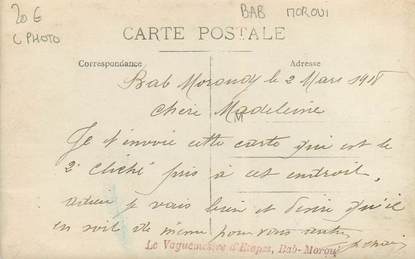 20 €
C PHOTO
BAB MOROUJ
CARTE POSTALE
Correspondance Adresse
Bab Moroudj le 2 Mars 1918
chère Madeleine
Je t'envoie cette carte qui est le
2e cliché pris à cet endroit,
je vais bien et désire qu'il
en soit de même pour vous
Le Vaguemestre d'Etapes, Bab-Morouj